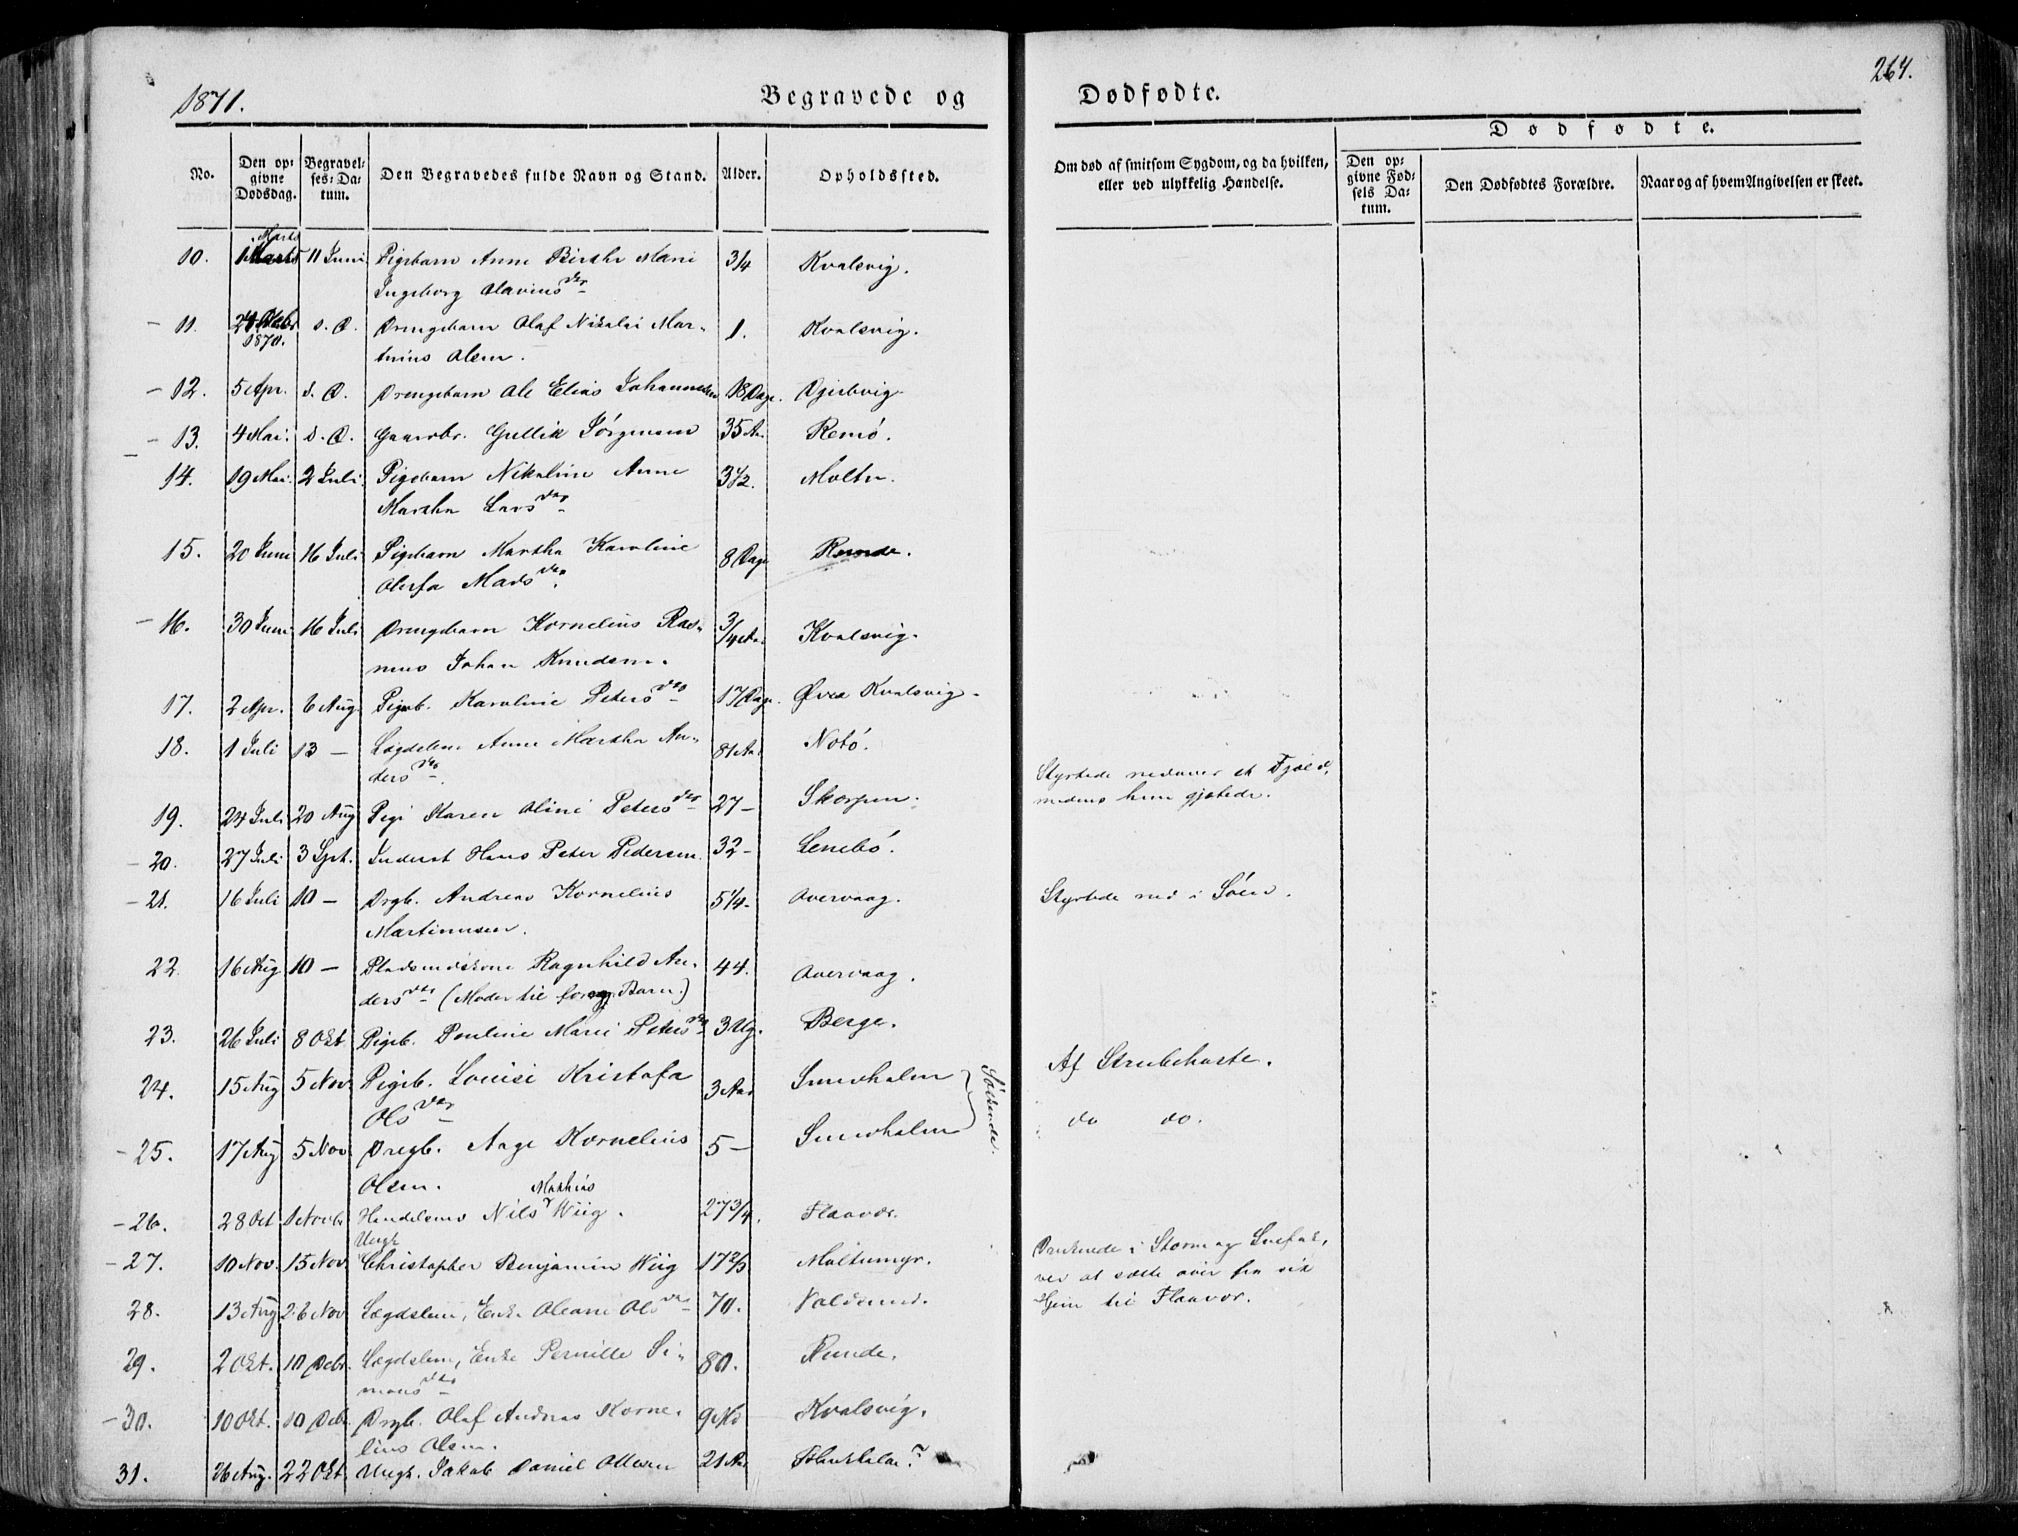 1871.
Begravede og
Dødfødte.
264.
No.
Den op-
givne
Dødsdag.
Begravel-
ses-Da-
tum.
Den Begravedes fulde Navn og Stand.
Alder.
Opholdssted.
Om død af smitsom Sygdom, og da hvilken,
eller ved ulykkelig Hændelse.
Dødfødte.
Den op-
givne Fød-
sels Da-
tum.
Den Dødfødtes Forældre.
Naar og af hvem Angivelsen er skeet.
10. 1 Marts 11 Juni Pigebarn Anne Birthe Marie 3/4 Kvalsvig.
Ingeborg Olavinsdtr
11. 24 Debr s. D. Drengebarn Olaf Nikolai Mar- 1. Kvalsvig.
1870.
tinius Olsen.
12. 5 Apr. s. D. Drengebarn Ole Elias Johannesen 18 Dage.
13. 4 Mai. s. D. Gaardbr. Gullik Jørgensen 35 Aar Remø.
14. 19 Mai. 2 Juli. Pigebarn Nikoline Anne 3 1/2. Moltu.
Martha Larsdtr
15. 20 Juni 16 Juli Pigebarn Martha Karoline 8 Dage Runde.
Olufa Madsdtr
16. 30 Juni 16 Juli Drengebarn Kornelius Ras- 3/4 Aar Kvalsvig.
mus Johan Knudsen.
17. 2 Apr. 6 Aug. Pigeb. Karoline Petersdtr 17 Dage. Øvre Kvalsvig.
18. 1 Juli 13 — Lægdslem Anne Martha An- 81 Aar Notø.
dersdtr.
19. 24 Juli 20 Aug Pige Karen Oline Petersdtr 27 — Skorpen. Styrtede nedover et Fjeld,
medens hun gjætede.
20. 27 Juli 3 Spt. Inderst Hans Peter Pedersen 32 — Lenebø.
21. 16 Juli 10 — Drgb. Andreas Kornelius 5 1/4 — Overvaag. Styrtede ned i Søen.
Martinussen.
22. 16 Aug 10 — Pladsmandskone Ragnhild An- 44. Overvaag.
dersdtr (Moder til foreg. Barn.)
23. 26 Juli 8 Okt Pigeb. Pauline Marie Petersdtr 3 Ug. Berge.
24. 15 Aug 5 Nov Pigeb. Louise Kristofa 3 Aar Smedholm Af Strubehoste.
Olsdtr
25. 17 Aug 5 Nov Drgb. Aage Kornelius 5 — Smedholm do do.
Olsen.
Mathias
26. 28 Oct 1 Novbr Handelsmd Nils Wiig. 27 3/4. Flaavær.
Ungk.
27. 10 Nov. 15 Nov. Christopher Benjamin Wiig 17 Moltumyr. Druknede i Storm og Snefok,
ved at sætte over fra sit
Hjem til Flaavær.
28. 13 Aug 26 Nov Lægdslem, Enke Oleane Olsdtr 70. Voldsund.
29. 2 Okt. 10 Debr. Lægdslem, Enke Pernille Si- 80. Runde.
monsdtr
30. 10 Okt. 10 Debr Drgb. Olaf Andreas Korne- 9 Md Kvalsvig.
lius Olsen.
31. 26 Aug. 22 Okt Ungk. Jakob Daniel Olsen 21 Aar